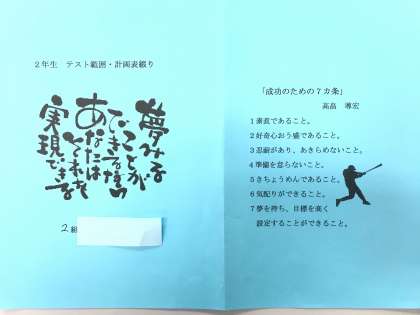 2年生 テスト範囲・計画表綴り
夢みる
ことが
できるなら
あなたは
それを
実現できる
2組
「成功のための7カ条」
高畠 導宏
1素直であること。
2好奇心おう盛であること。
3忍耐があり、あきらめないこと。
4準備を怠らないこと。
5きちょうめんであること。
6気配りができること。
7夢を持ち、目標を高く
設定することができること。